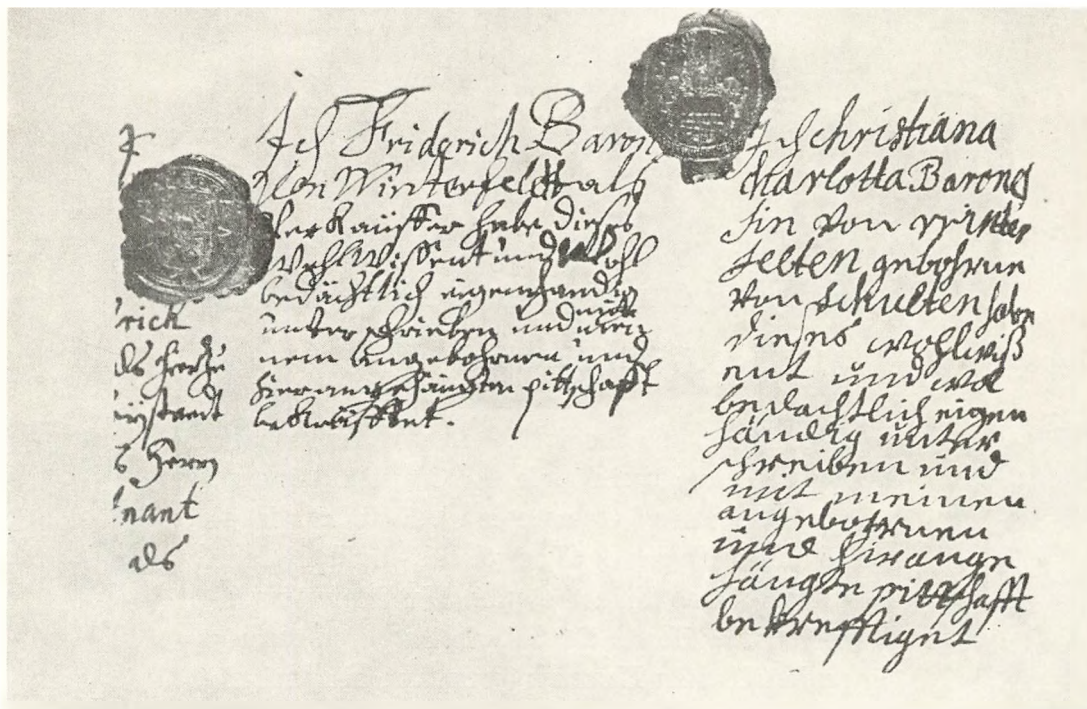 rich
nant
als
Ich Friderich Baron
Von Winterfeldt als
Verkäuffer habe dieses
Wohl Wissent und Wohl
bedächtlich eigenhändig
unterschrieben und mit mei
nem angebohrnen und
hieran gehängten pittschafft
bekräfftet.
Ich Christiana
Charlotta Barones
sin von winter
felten gebohrne
von Schulten habe
dieses wohlwiß
ent und wol
bedachtlich eigen
händig unter
schreiben und
mit meinen
angebohrnen
und hirange
hängte pittschafft
bekrefftiget